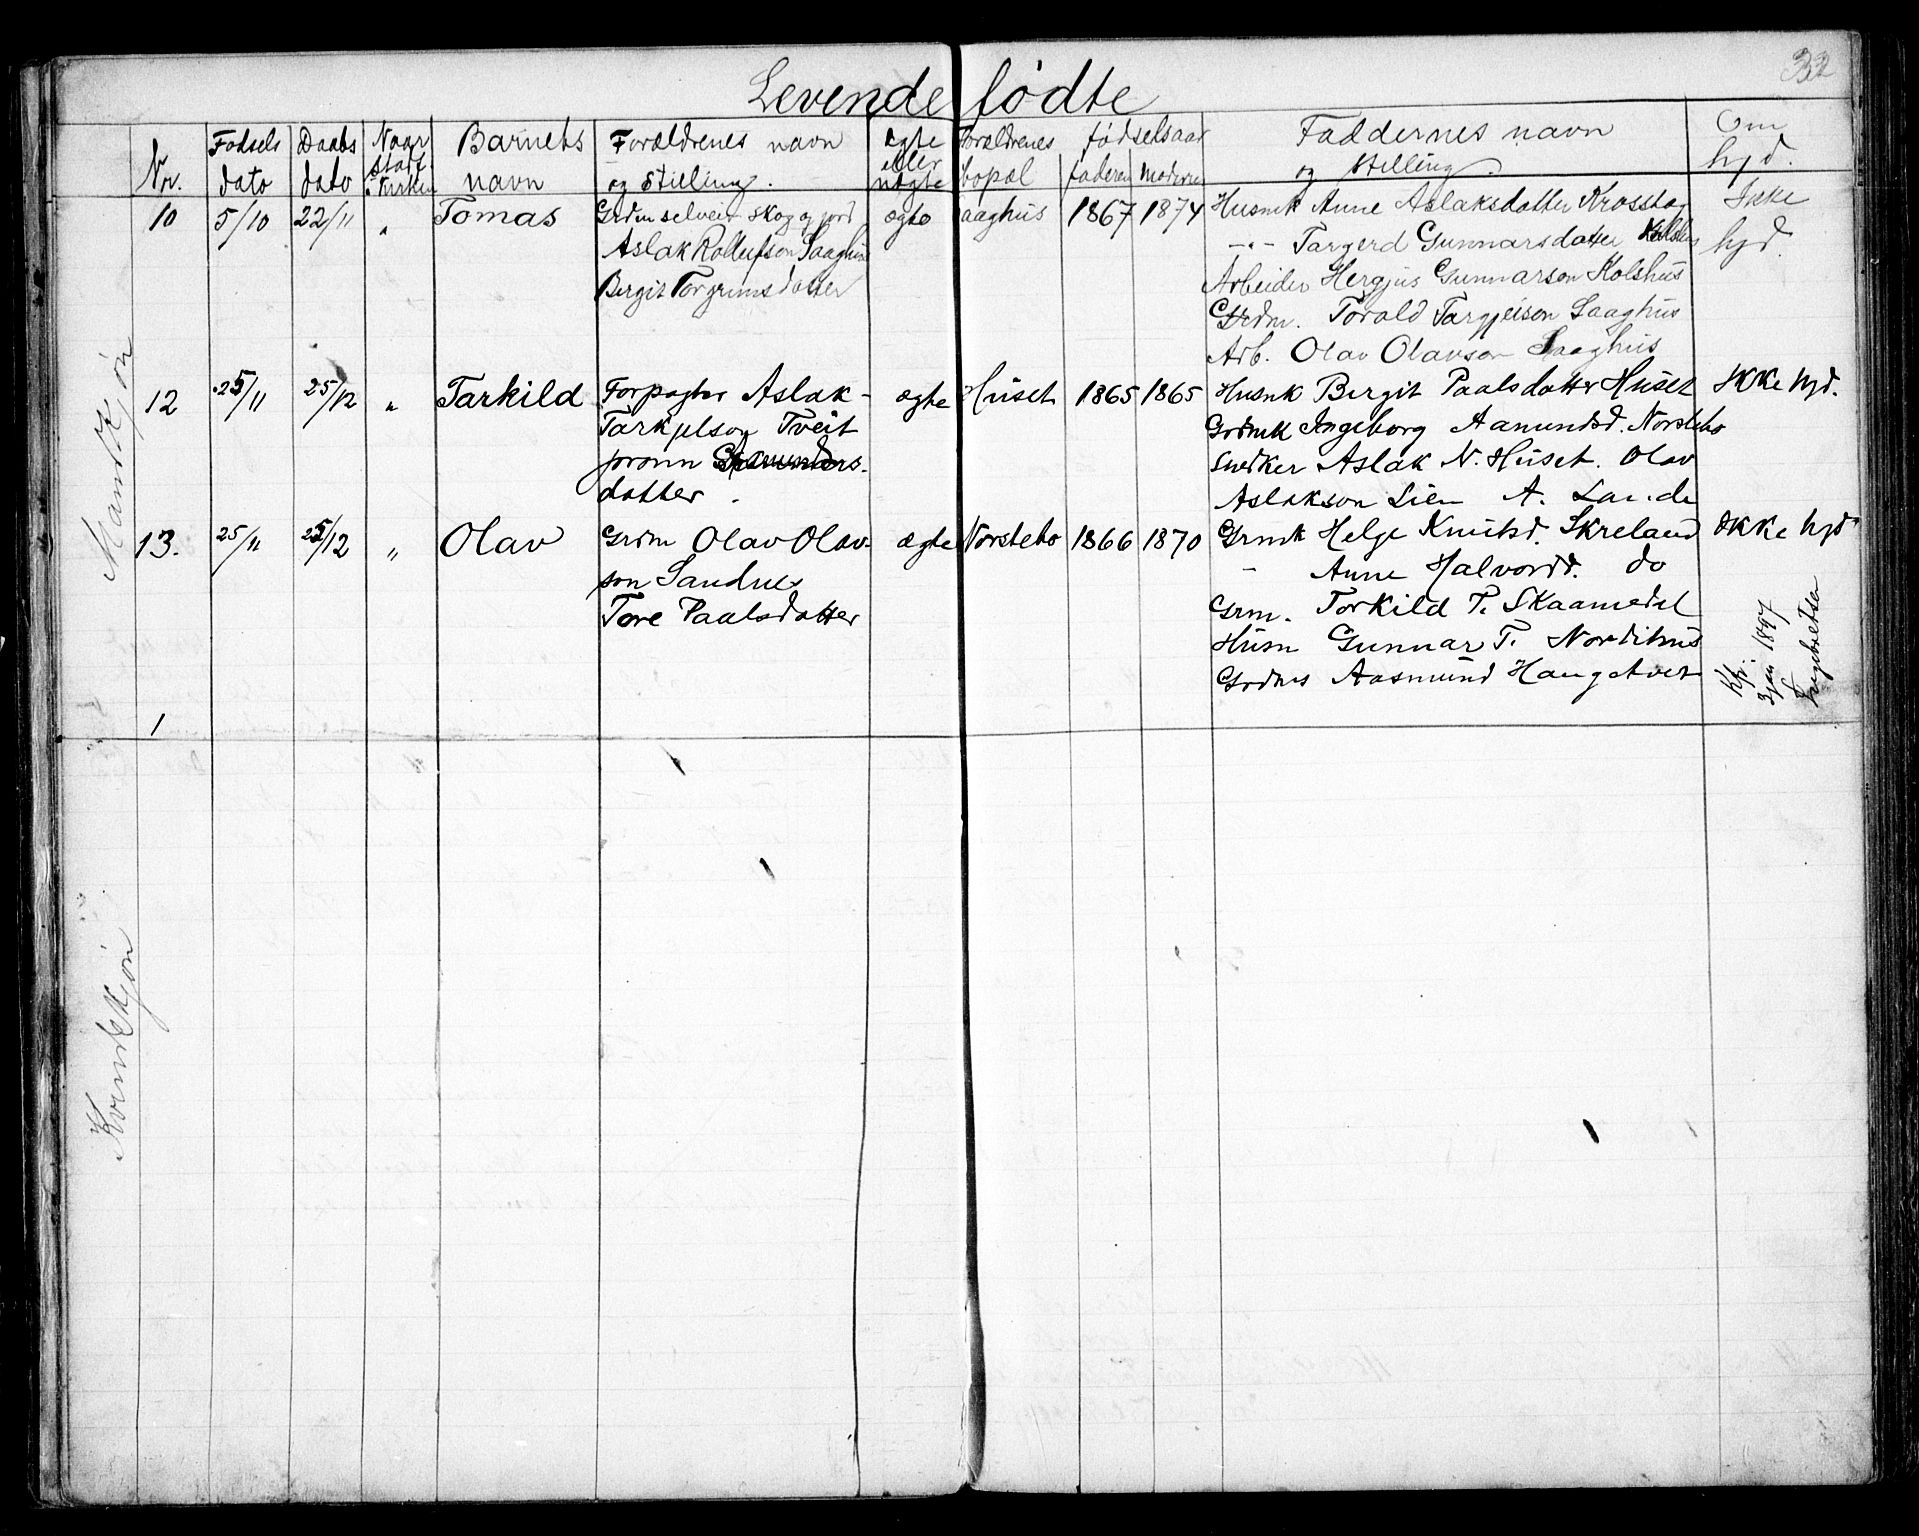 32
Levende fødte
Nr.
Fødsels dato
Daabs dato
Naar stadf. i Kirken
Barnets navn
Forældrenes navn og Stilling.
ægte eller uægte
Forældrenes bopæl
fødselsaar
faderen
moderen
Faddernes navn og stilling.
Om hjd.
Mandkjøn
10 5/10 22/11 " Tomas
Grdm selveier skog og jord
Aslak Rollefson Saaghus
Bergit Torgrimsdatter
ægte Saaghus 1867 1874
Husmk Anne Aslaksdatter
-"- Targerd Gunnarsdatter
Arbeider Hergjus Gunnarson Kolshus
Grdm. Torald Targjeison Saaghus
Arb. Olav Olavson Saaghus
Ikke
hjd.
12 25/11 25/12 " Tarkild
Forpagter Aslak
Tarkjelson Tveit
datter.
ægte Huset 1865 1865
Husmk Bergit Paalsdatter Huset
Grdmk Ingeborg Aamundsd. Norstebø
Snedker Aslak N. Huset. Olav
Aslakson Lien A. Lande
Ikke hjd.
13. 25/11 25/12 " Olav
Grdm Olav Olav-
son Sandnes
Tore Paalsdatter
ægte Norstebø 1866 1870
Grmk Helge Knutsd. Skreland
- Anne Halvordd. do
Grm. Torkild T. Skaamedal
Husm Gunnar T. Nordihus
Aasmund Haugetveit
Ikke hjd
3 jan 1897
Ingebretsen
1
Kvindekjøn